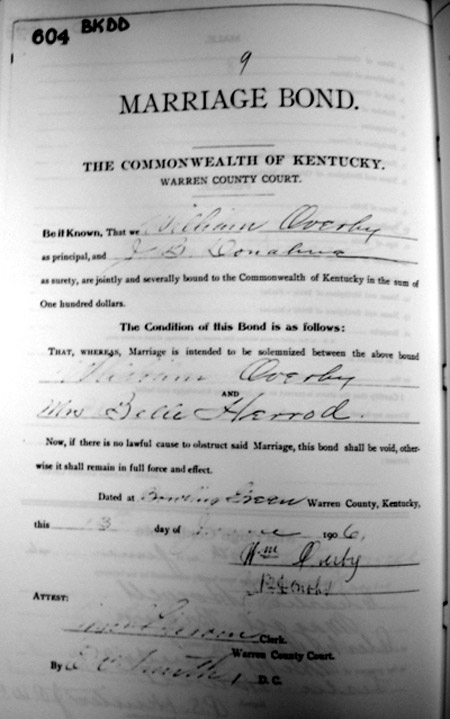 604 BKDD
9
MARRIAGE BOND.
THE COMMONWEALTH OF KENTUCKY.
WARREN COUNTY COURT.
Be it Known, That we William Overby
as principal, and J B Donahue
as surety, are jointly and severally bound to the Commonwealth of Kentucky in the sum of
One hundred dollars.
The Condition of this Bond is as follows:
THAT, WHEREAS, Marriage is intended to be solemnized between the above bound
William Overby
AND
Mrs Belle Herrod.
Now, if there is no lawful cause to obstruct said Marriage, this bond shall be void, other-
wise it shall remain in full force and effect.
Dated at Bowling Green Warren County, Kentucky,
this 13 day of 1906.
Wm Overby
ATTEST:
Clerk.
Warren County Court.
By Smith, D.C.